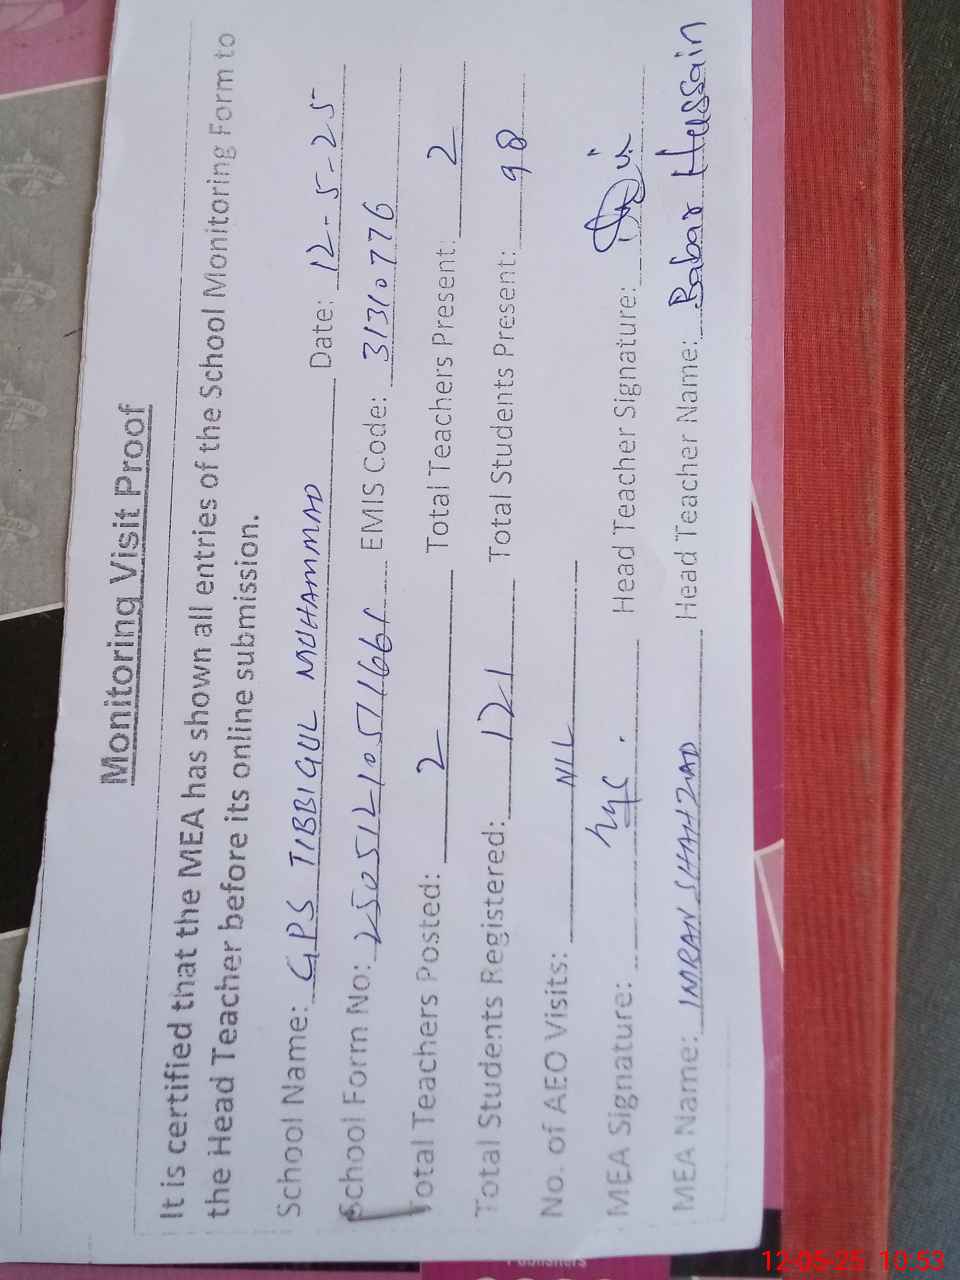 Monitoring Visit Proof
It is certified that the MEA has shown all entries of the School Monitoring Form to
the Head Teacher before its online submission.
School Name: GPS TIBBI GUL MUHAMMAD Date: 12-5-25
School Form No: EMIS Code: 31310776
Total Teachers Posted: 2 Total Teachers Present: 2
Total Students Registered: 121 Total Students Present: 98
No. of AEO Visits: NIL
MEA Signature: Head Teacher Signature:
MEA Name: IMRAN SHAHZAD Head Teacher Name: Babar Hussain
Publishers
12-05-25 10:53